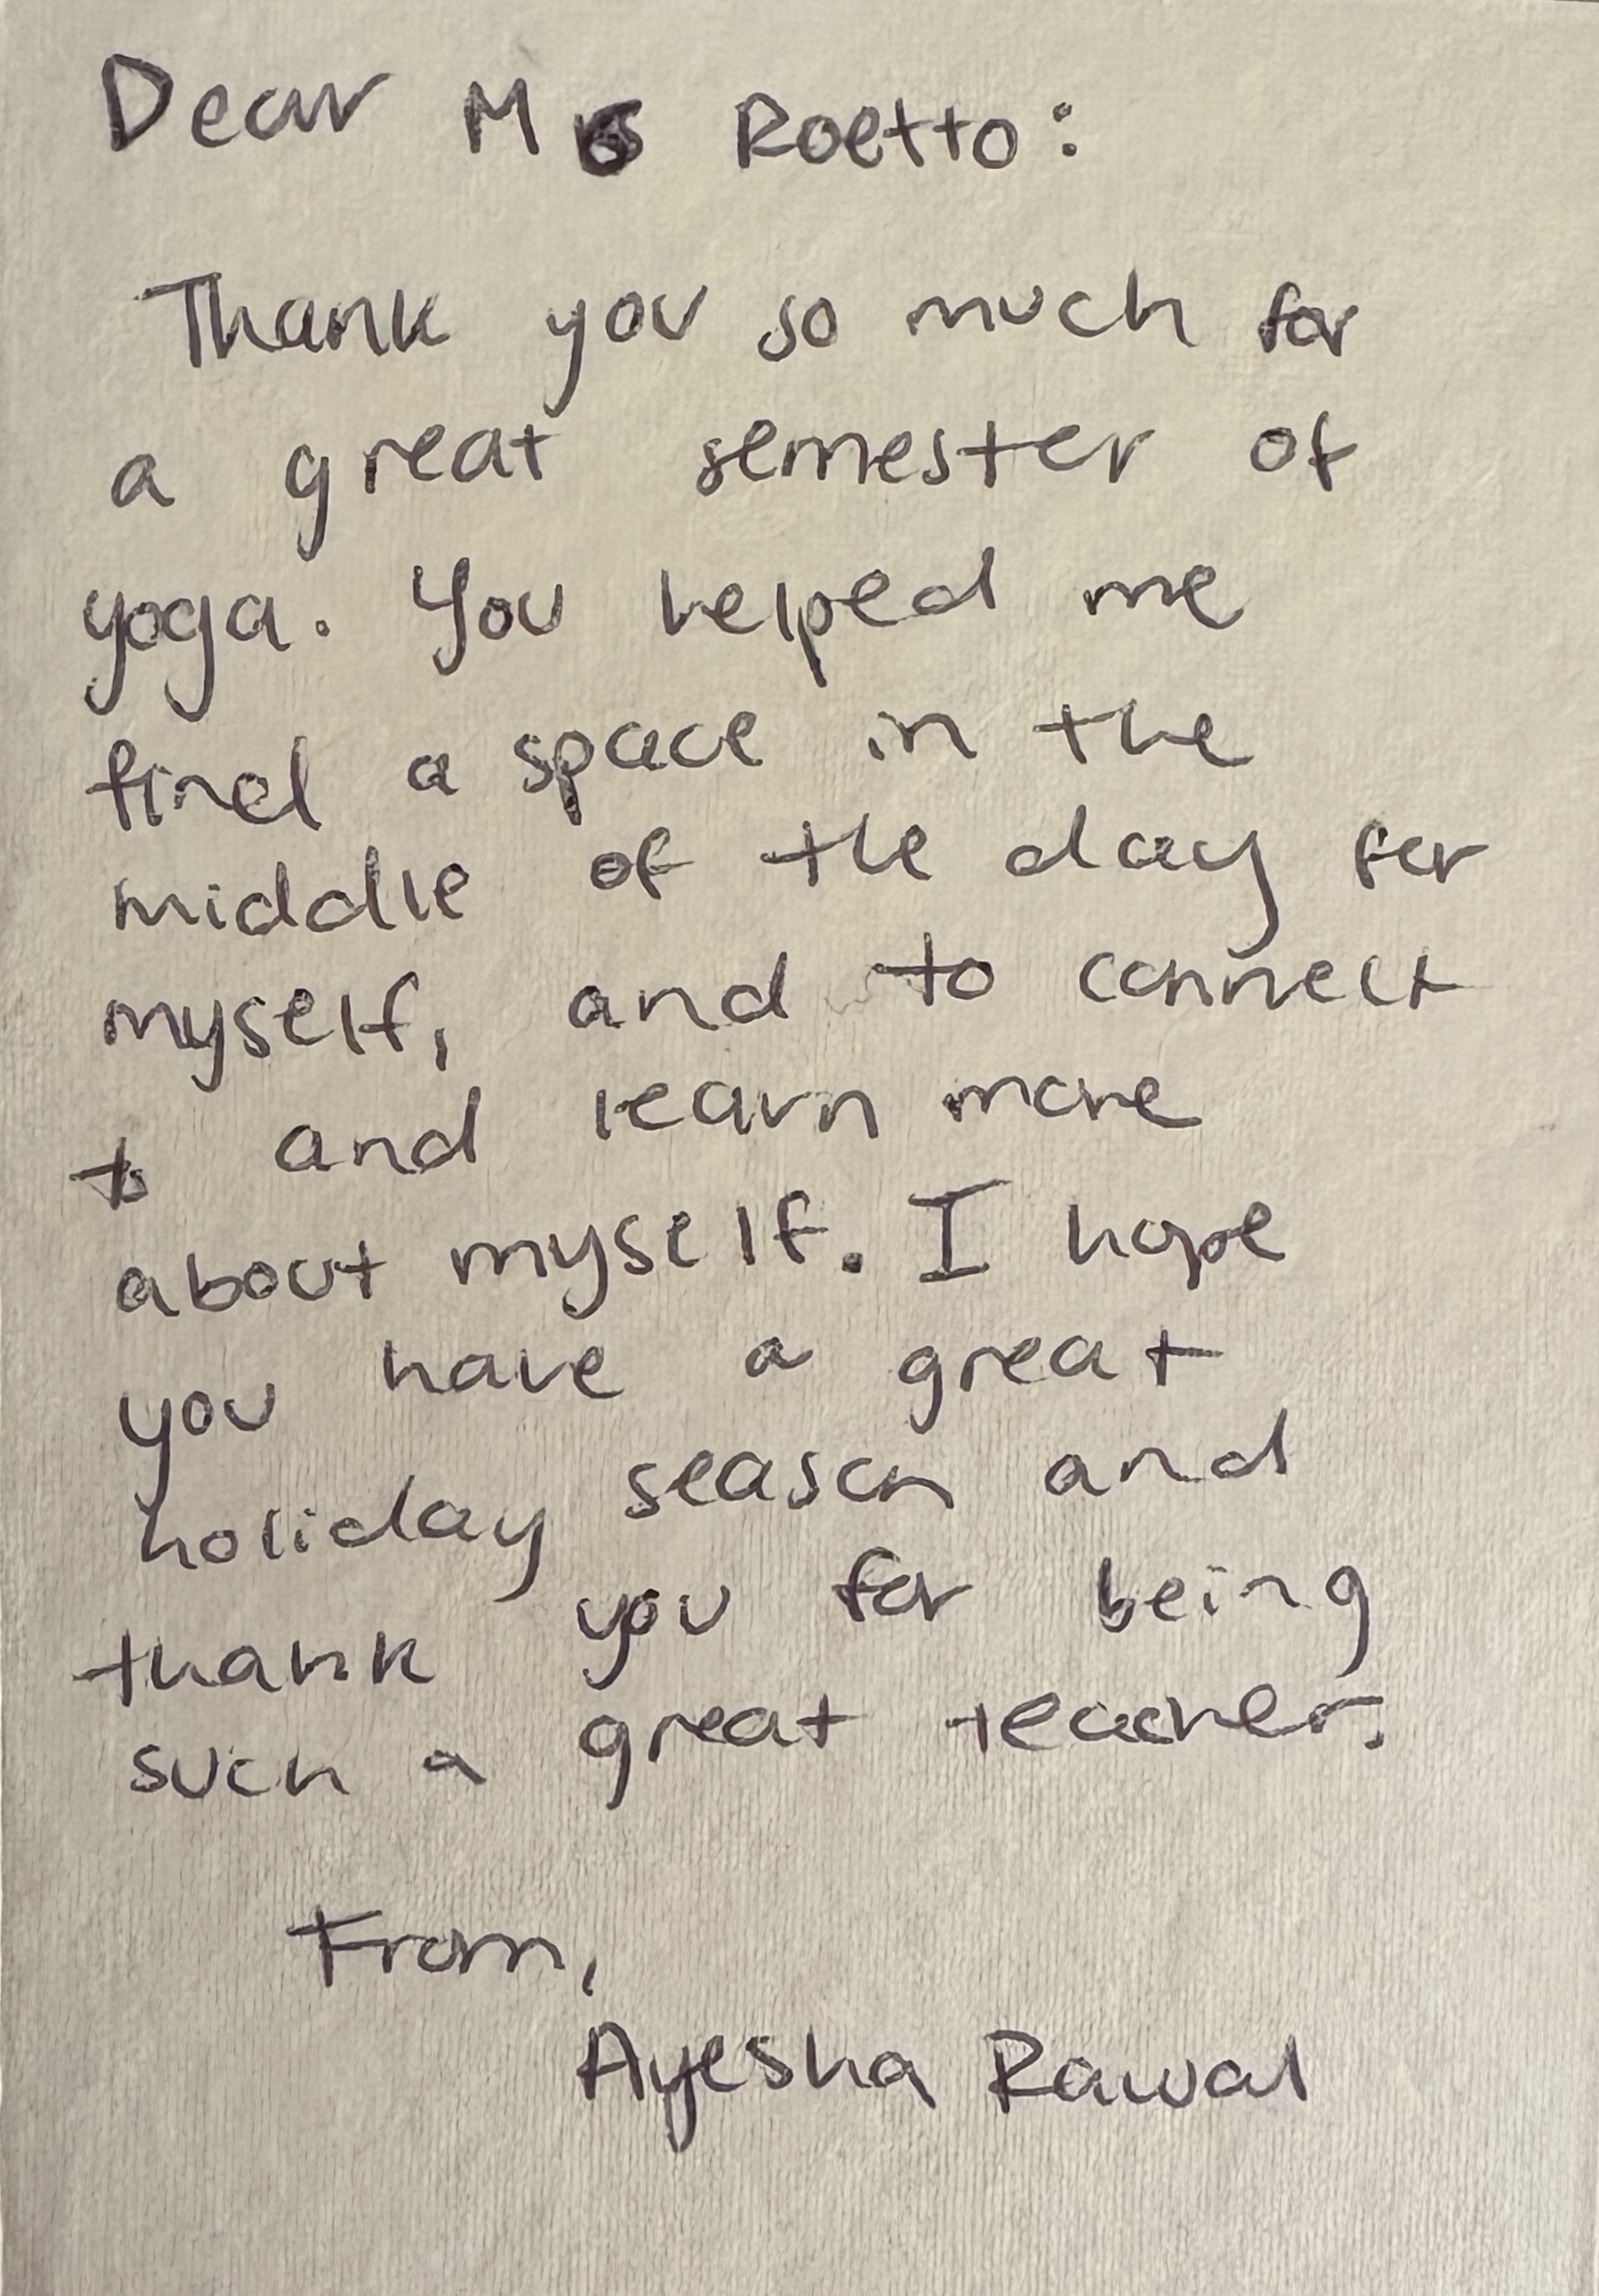 Dear Ms Roetto:
Thank you so much for
a great semester of
yoga. You helped me
find a space in the
middle of the day for
myself, and to connect
to and learn more
about myself. I hope
you have a great
holiday season and
thank you for being
such a great teacher.
From,
Ayesha Rawal